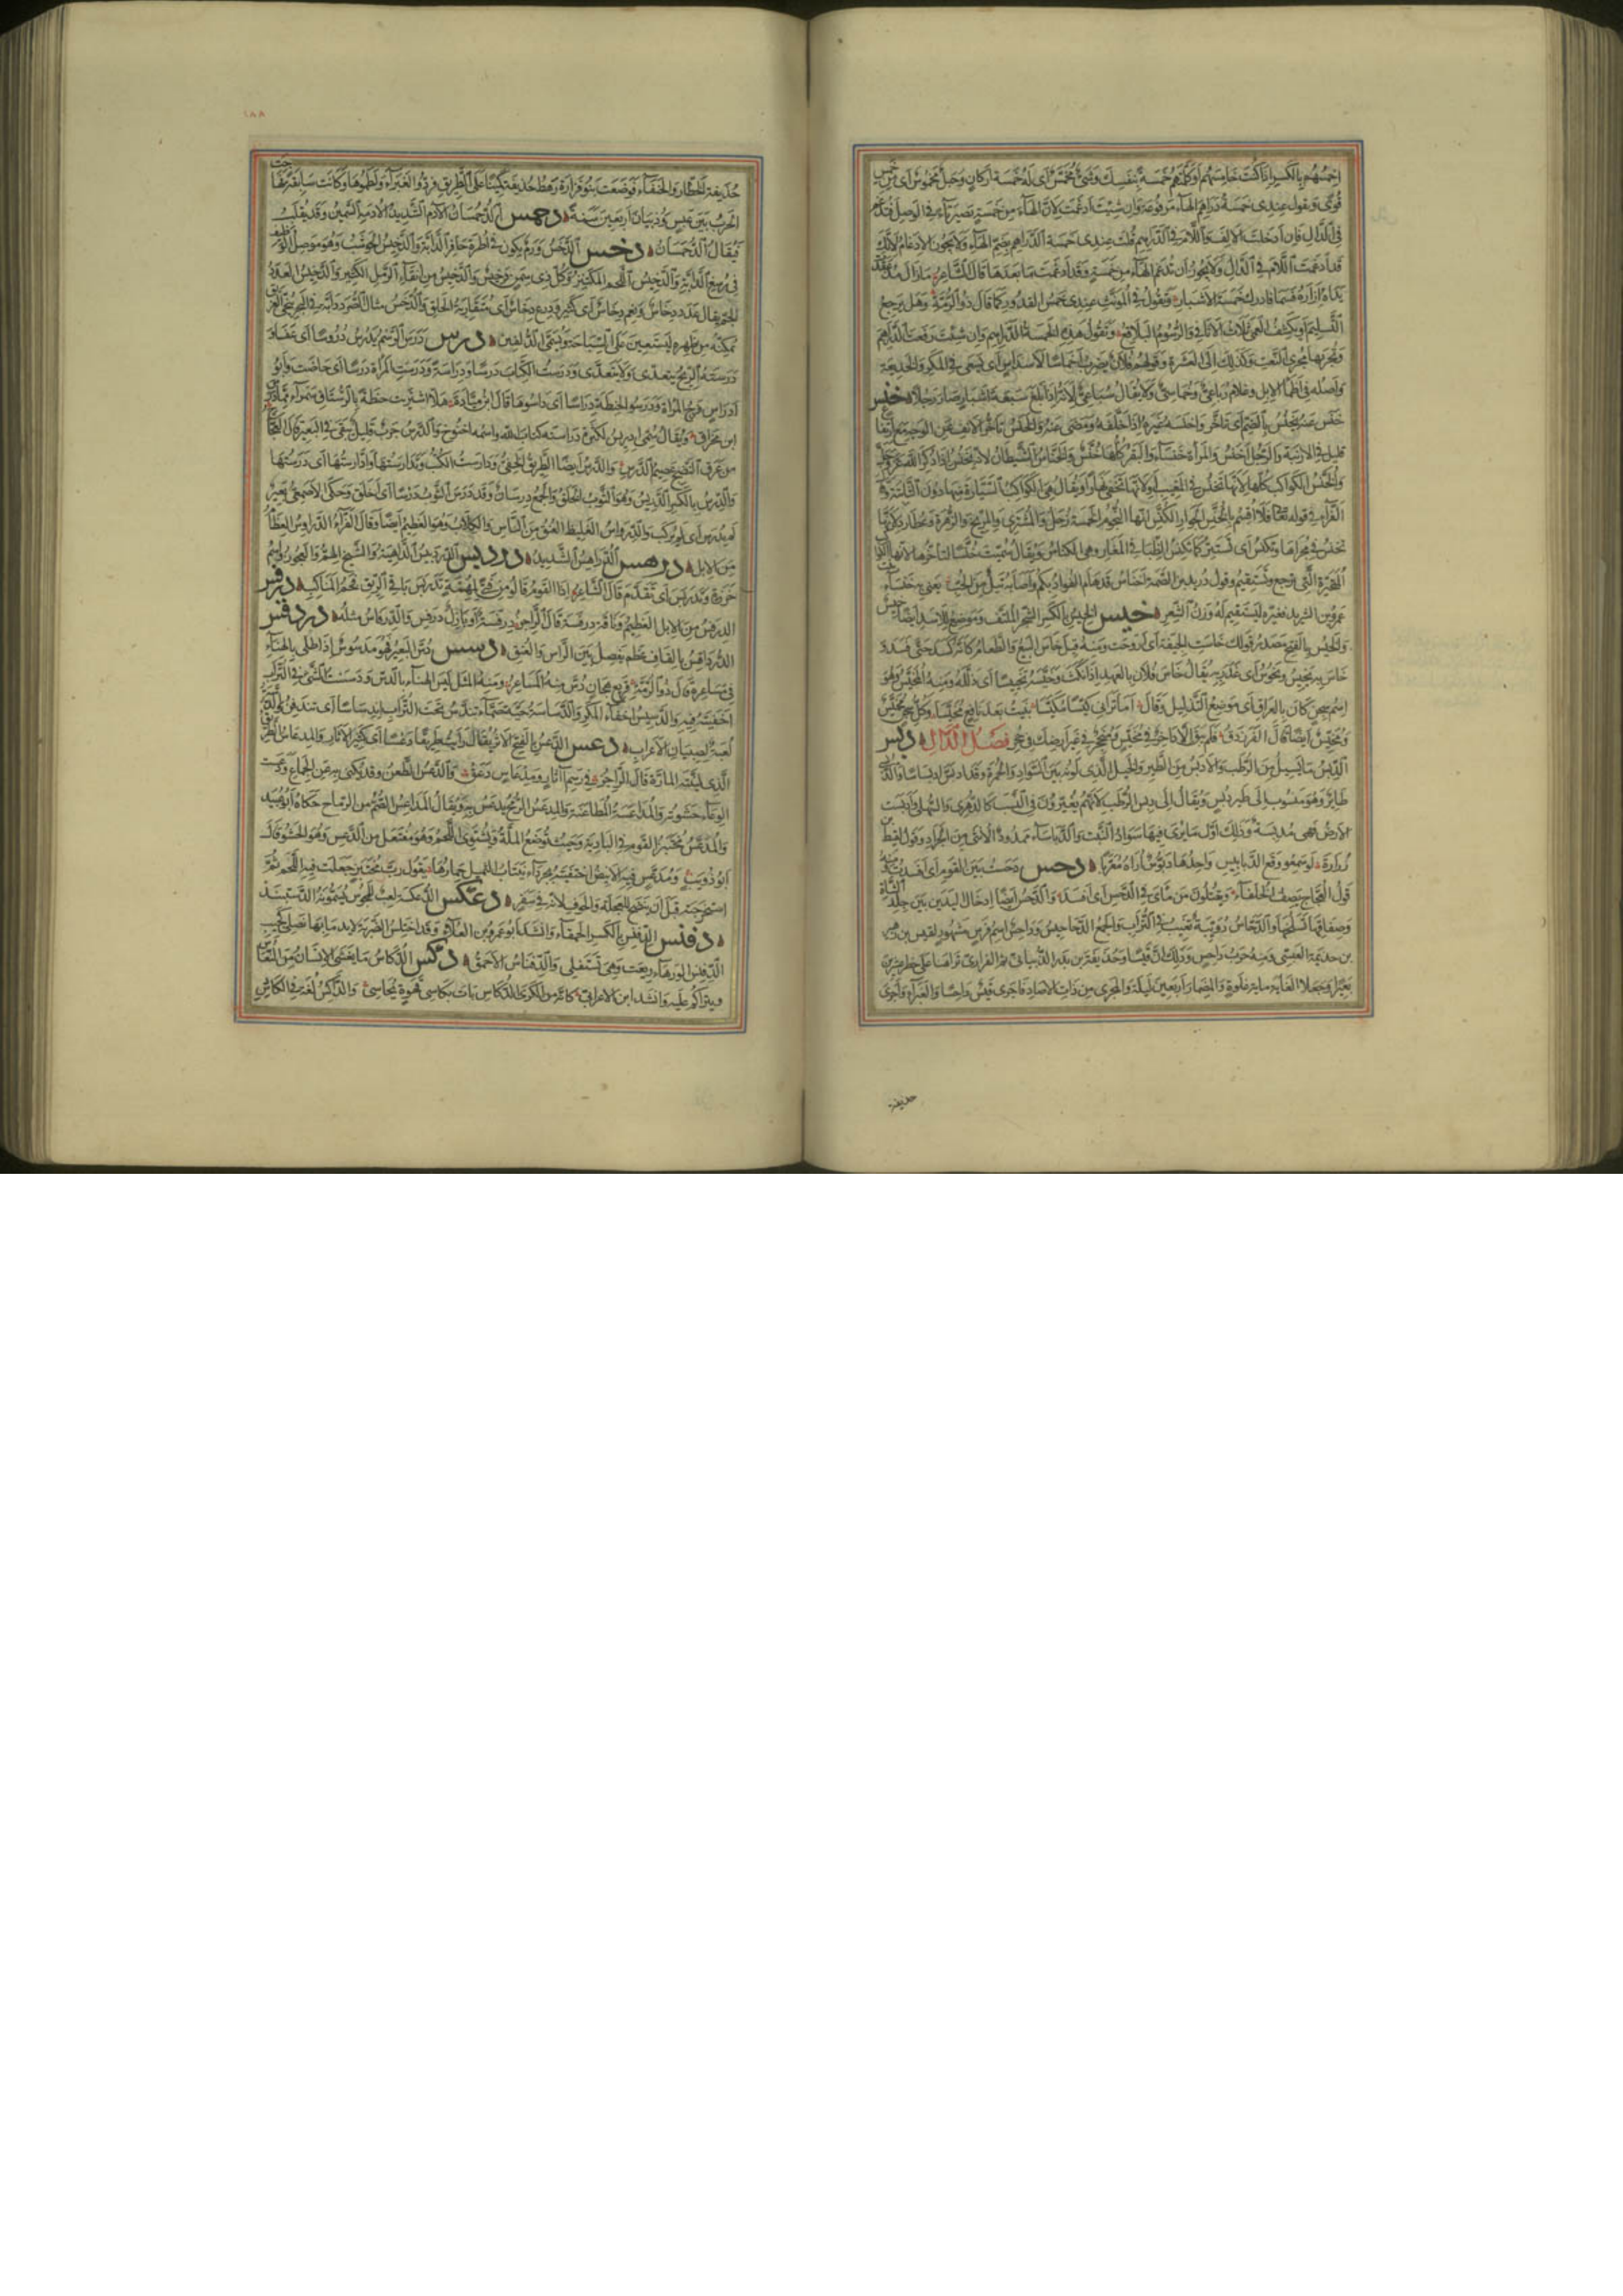 اخمسهم بالكسر اذا كنت خامسهم او كملتهم خمسة بنفسك وشىء مخمس اى له خمسة اركان وحبل مخموس اى من خمس
قوى وتقول عندى خمسة دراهم الهاء مرفوعة وان شئت ادغمت لان الهاء من خمسة تصير تاء فى الوصل فتدغم
فى الدال فان ادخلت الالف واللام فى الدراهم قلت عندى خمسة الدراهم بضم الهاء ولا يجوز الادغام لانك
قد ادغمت اللام فى الدال ولا يجوز ان تدغم الهاء من خمسة وقد ادغمت ما بعدها قال الشاعر ما زال مذ عقدت
يداه ازاره فسما فادرك خمسة الاشبار وتقول فى المونث عندى خمس القدور كما قال ذو الرمة وهل يرجع
التسليم او يكشف العمى ثلاث الاثافى والرسوم البلاقع وتقول هذه الخمسة الدراهم وان شئت رفعت الدراهم
وتجريها مجرى النعت وكذلك الى العشرة وقولهم فلان يضرب اخماسا لاسداس اى يسعى فى المكر والخديعة
واصله فى اظماء الابل وغلام رباعى وخماسى ولا يقال سباعى لانه اذا بلغ سبعة اشبار صار رجلا خنس
خنس عنه يخنس بالضم اى تاخر واخنسه غيره اذا خلفه ومضى عنه والخنس تاخر الانف عن الوجه مع ارتفاع
قليل فى الارنبة والرجل اخنس والمرأة خنساء والبقر كلها خنس والخناس الشيطان لانه يخنس اذا ذكر الله عز وجل
والخنس الكواكب كلها لانها تخنس فى المغيب او لانها تخفى نهارا ويقال هى الكواكب السيارة منها دون الثابتة
القراء فى قوله تعالى فلا اقسم بالخنس الجوار الكنس انها النجوم الخمسة زحل والمشترى والمريخ والزهرة وعطارد لانها
تخنس فى مجراها وتكنس اى تستتر كما تكنس الظباء فى المغار وهى الكناس ويقال سميت خنسا لتاخرها لانها الكواكب
المتحيرة التى ترجع وتستقيم وقول دريد بن الصمة اخناس قد هام الفؤاد بكم واصابه تبل من الحب يعنى به خنساء بنت
عمرو بن الشريد فغيره ليستقيم له وزن الشعر خيس الخيس بالكسر الشجر الملتف وموضع الاسد ايضا خيس
والخيس بالفتح مصدر قولك خاست الجيفة اى اروحت ومنه قيل خاس البيع والطعام كانه كسد حتى فسد و
خاس به يخيس ويخوس اى غدر به يقال خاس فلان بالعهد اذا نكث وخيسه تخييسا اى ذلله ومنه المخيس وهو
اسم سجن كان بالعراق اى موضع التذليل وقال اما ترانى كيسا مكيسا بنيت بعد نافع مخيسا وكل سجن مخيس
ومخيس ايضا قال الفرزدق فلم يبق الا داخر فى مخيس ومنجحر فى غير ارضك فى جحر فصل الدال دبس
الدبس ما يسيل من الرطب والادبس من الطير والخيل الذى لونه بين السواد والحمرة وقد ادبس ادبساسا والدبسى
طائر وهو منسوب الى طير دبس ويقال الى دبس الرطب لانهم يغيرون فى النسب كالدهرى والسهلى وادبست
الارض فهى مدبسة وذلك اول ما يرى فيها سواد النبت والدباساء ممدودا الانثى من الجراد وقول لقيط بن
زرارة لو سمعوا وقع الدبابيس واحدها دبوس اراه معربا دحس دحست بين القوم اى افسدت ومنه
قول العجاج يصف الخلفاء ويعتلون من ماى فى الدحس اى افسد والدحس ايضا ادخال اليدين بين جلد الشاة
وصفاقها لسلخها والدحاس دويبة تغيب فى التراب والجمع الدحاحيس وداحس اسم فرس مشهور لقيس بن زهير
بن جذيمة العبسى ومنه حرب داحس وذلك ان قيسا وحذيفة بن بدر الذبيانى ثم الفزارى تراهنا على خطر عشرين
بعيرا وجعلا الغاية ماية غلوة والمضمار اربعين ليلة والمجرى من ذات الاصاد فاجرى قيس داحسا والغبراء واجرى
حذيفة
١٨٨
حذيفة الخطار والحنفاء فوضعت بنو فزارة رهط حذيفة كمينا على الطريق فردوا الغبراء ولطموها وكانت سابقة فهاجت
الحرب بين عبس وذبيان اربعين سنة دحمس الدحمسان الآدم الشديد الادمة السمين وقد يقلب
فيقال الدحسمان دخس الدخس ورم يكون فى اطرة حافر الدابة والدخيس الحوشب وهو موصل الوظيف
فى رسغ الدابة والدخيس اللحم المكتنز وكل ذى سمن دخيس والدخيس من انقاء الرمل الكثير والدخيس العدد
الجم يقال عدد دخاس ونعم دخاس اى كثير ودرع دخاس اى متقاربة الحلق والدخس مثال الصرد دابة فى البحر تنجى الغريق
تمكنه من ظهره ليستعين على السباحة ويسمى الدلفين درس درس الرسم يدرس دروسا اى عفا و
درسته الريح يتعدى ولا يتعدى ودرست الكتاب درسا ودراسة ودرست المرأة درسا اى حاضت وابو
ادراس فرج المرأة ودرسوا الحنطة دراسا اى داسوها قال ابن ميادة هلا اشتريت حنطة بالرستاق سمراء مما درس
ابن مخراق ويقال سمى ادريس لكثرة دراسته كتاب الله واسمه اخنوخ والدرس جرب قليل يبقى فى البعير قال العجاج
من عرق النضح عصيم الدرس والدرس ايضا الطريق الخفى ودارست الكتب وتدارستها وادارستها اى درستها
والدرس بالكسر الدريس وهو الثوب الخلق والجمع درسان وقد درس الثوب درسا اى اخلق وحكى الاصمعى بعير
لم يدرس اى لم يركب والدرواس الغليظ العنق من الناس والكلاب وهو العظيم ايضا وقال الفراء الدراوس العظام
من الابل درهس الدراهس الشديد دردبيس الدردبيس الداهية والشيخ الهم والعجوز واسم
خرزة وتدربس اى تقدم قال الشاعر اذا القوم قالوا من فتى لمهمة تدربس باقى الريق فخم المناكب درفس
الدرفس من الابل العظيم وناقة درفسة قال الراجز درفسة او بازل درفس والدرفاس مثله دردقس
الدرداقس بالقاف عظم يفصل بين الراس والعنق دسس دس البعير فهو مدسوس اذا طلى بالهناء
فى مساعره قال ذو الرمة قريع هجان دس منه المساعر ومنه المثل ليس الهناء بالدس ودسست الشىء فى التراب
اخفيته فيه والدسيس اخفاء المكر والدساسة حية صماء تندس تحت التراب اندساسا اى تندفن والدسة
لعبة لصبيان الاعراب دعس الدعس بالفتح الاثر يقال رايت طريقا دعسا اى كثير الآثار والمدعاس الطريق
الذى لينته المارة قال الراجز فى رسم آثار ومدعاس دعق والدعس الطعن وقد يكنى به عن الجماع ودعست
الوعاء حشوته والمداعسة المطاعنة والمدعس الرمح يدعس به ويقال المداعس الصم من الرماح حكاه ابو عبيد
والمدعس مختبز القوم فى البادية وحيث توضع الملة ويشتوى اللحم وهو مفتعل من الدعس وهو الحشو قال
ابو ذويب ومدعس فيه الانيض اختفيته بجرداء ينتاب الثميل حمارها يقول رب مختبز جعلت فيه اللحم ثم
استخرجته قبل ان ينضج للعجلة والخوف لانه فى سفر دعكس الدعكسة لعب للمجوس يسمونه الدستبند
دفنس الدفنس بالكسر الحمقاء وانشد ابو عمرو بن العلاء وقد اختلس الضربة لا يدمى لها نصلى كجيب
الدفنس الورهاء ريعت وهى تستفلى والدفناس الاحمق دكس الدكاس ما يغشى الانسان من النعاس
ويتراكم عليه وانشد ابن الاعرابى كانه من الكرى الدكاس بات بكاسى قهوة يحاسى والداكس لغة فى الكادس